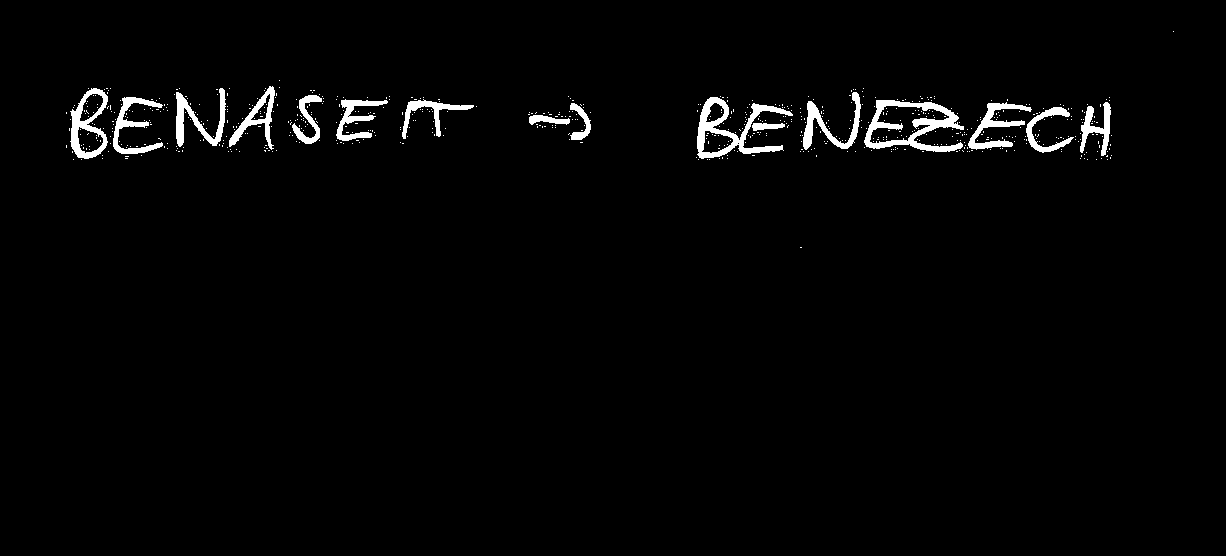 BENASEIT → BENEZECH